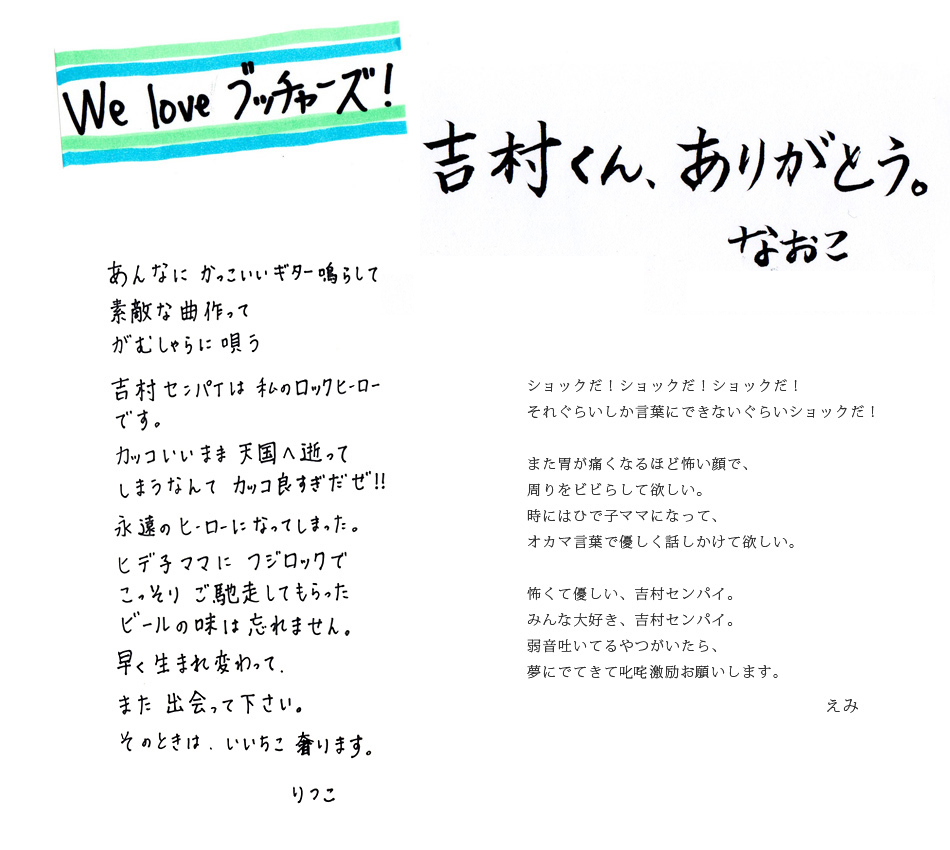 We love ブッチャーズ!
吉村くん、ありがとう。
なおこ
あんなに かっこいいギター鳴らして
素敵な曲作って
がむしゃらに唄う
吉村センパイは 私のロックヒーロー
です。
カッコいいまま 天国へ逝って
しまうなんて カッコ良すぎだぜ!!
永遠のヒーローになってしまった。
ヒデ子ママに フジロックで
こっそり ご馳走してもらった
ビールの味は忘れません。
早く生まれ変わって.
また 出会って下さい。
そのときは. いいちこ 奢ります。
りつこ
ショックだ！ショックだ！ショックだ！
それぐらいしか言葉にできないぐらいショックだ！
また胃が痛くなるほど怖い顔で、
周りをビビらして欲しい。
時にはひで子ママになって、
オカマ言葉で優しく話しかけて欲しい。
怖くて優しい、吉村センパイ。
みんな大好き、吉村センパイ。
弱音吐いてるやつがいたら、
夢にでてきて叱咤激励お願いします。
えみ